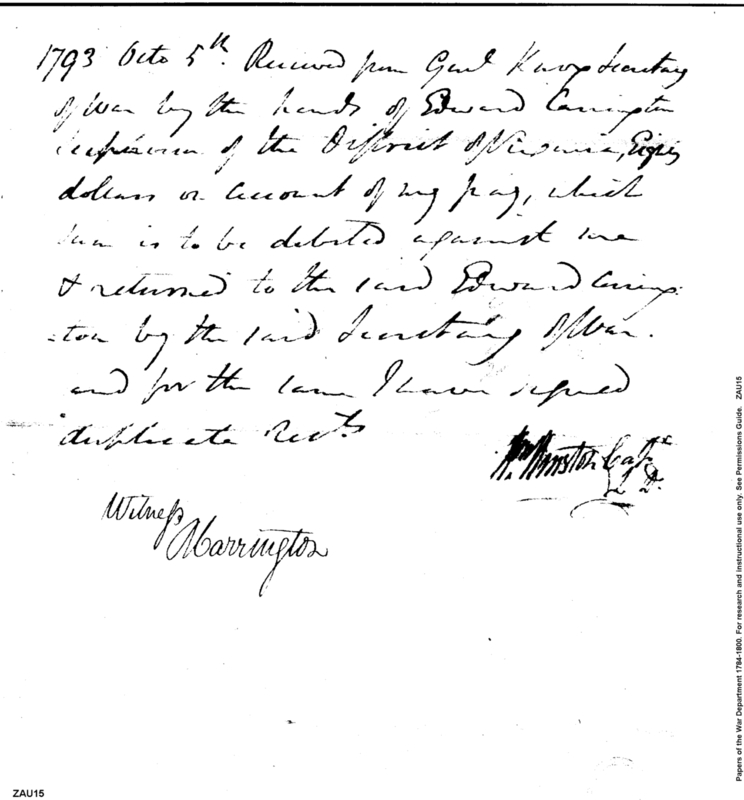 1793 Octo 5th. Received from Genl Knox Secretary
of War by the hands of Edward Carrington
Supervisor of the District of Virginia, Eighty
dollars on account of my pay, which
sum is to be debited against me
& returned to the said Edward Carring-
=ton by the said Secretary of War.
and for the same I have signed
duplicate Rects
Wm Winston Capt
L D.
Witness
Carrington
ZAU15
Papers of the War Department 1784-1800. For research and instructional use only. See Permissions Guide. ZAU15